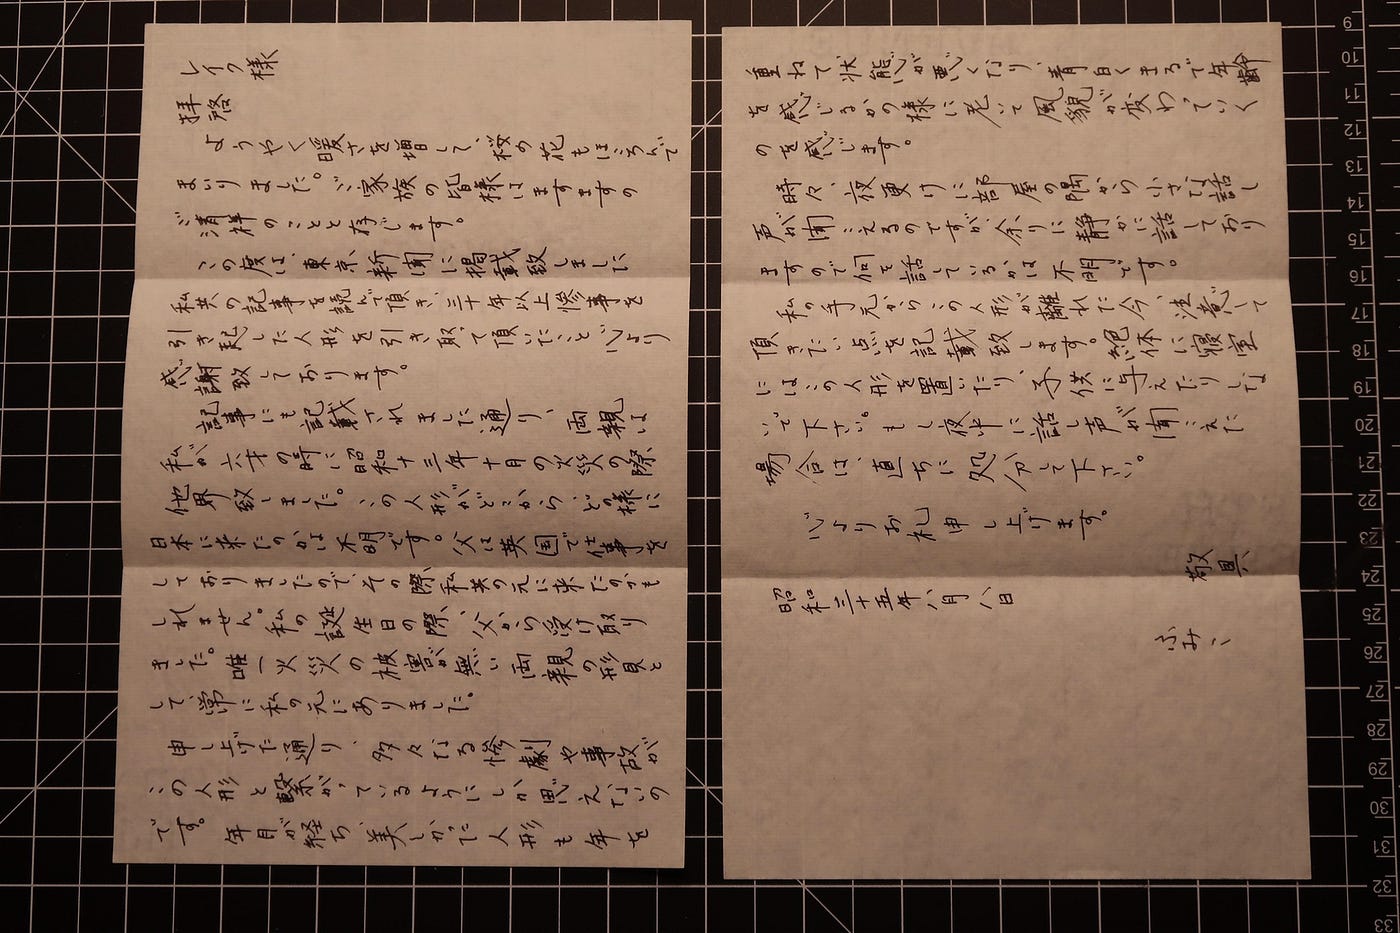 レイク様
拝啓
ようやく暖さを増して、桜の花もほころんで
まいりました。ご家族の皆様はますますの
ご清祥のことと存じます。
この度は、東京新聞に掲載致しました
私共の記事を読んで頂き、三十年以上惨事を
引き起した人形を引き取って頂いたこと心より
感謝致しております。
記事にも記載されました通り、両親は
私が六才の時に昭和十三年十月の火災の際、
他界致しました。この人形がどこから、どの様に
日本に来たのかは不明です。父は英国で仕事を
しておりましたので、その際、私共の元に来たのかも
しれません。私の誕生日の際、父から受け取り
ました。唯一火災の被害が無い両親の形見と
して、常に私の元にありました。
申し上げた通り、多々なる惨劇や事故が
この人形と繋がっているようにしか思えないの
です。年月が経ち、美しかった人形も年を
重ねて状態が悪くなり、青白くまるで年齢
を感じるかの様に老いて風貌が変わっていく
のを感じます。
時々、夜更けに部屋の隅から小さな話し
声が聞こえるのですが、余りに静かに話しており
ますので何を話しているかは不明です。
私の手元からこの人形が離れた今、注意して
頂きたい点を記載致します。絶体に寝室
にはこの人形を置いたり、子供に与えたりしな
いで下さい。もし夜中に話し声が聞こえた
場合は、直ちに処分して下さい。
心よりお礼申し上げます。
敬具
昭和三十五年八月八日
ふみこ
9
10
11
12
13
14
15
16
17
18
19
20
21
22
23
24
25
26
27
28
29
30
31
32
33